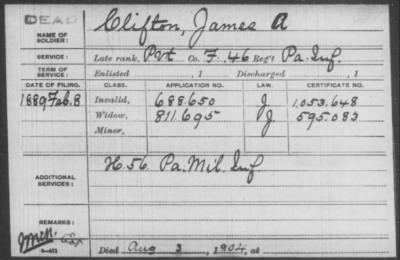 DEAD
NAME OF SOLDIER: Clifton, James A
SERVICE: Late rank, Pvt Co. F. 46 Reg't Pa. Inf.
TERM OF SERVICE: Enlisted , 1 Discharged , 1
DATE OF FILING. CLASS. APPLICATION NO. LAW. CERTIFICATE NO.
1889 Feb. 8 Invalid, 688.650 J. 1.053.648
Widow, 811.695 J 595.083
Minor,
ADDITIONAL SERVICES: H. 56. Pa. Mil. Inf
REMARKS:
Died Aug 3, 1904, at